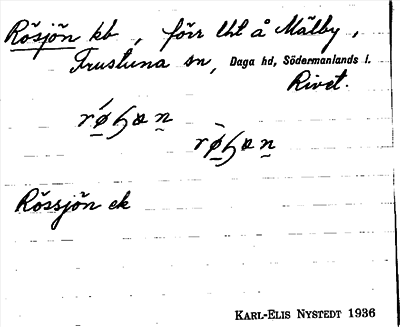 Rösjön kb, förr lht å Mälby,
Frustuna sn, Daga hd, Södermanlands l.
Rivet.
Rössjön ek
KARL-ELIS NYSTEDT 1936